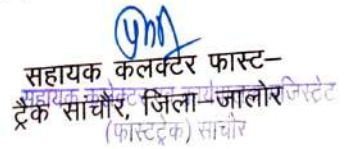 सहायक कलक्टर फास्ट–
ट्रैक सांचौर, जिला–जालोर
सहायक कलेक्टर एवं कार्यपालक मजिस्ट्रेट
(फास्टट्रेक) सांचोर